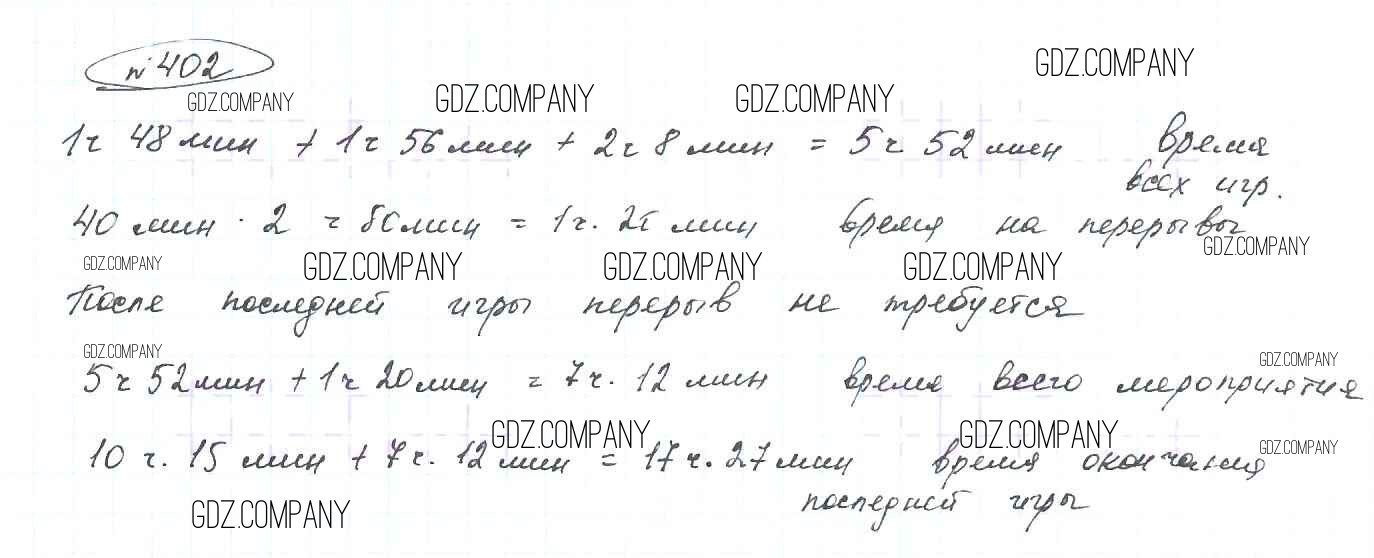 № 402
GDZ.COMPANY
GDZ.COMPANY GDZ.COMPANY GDZ.COMPANY
1ч 48 мин + 1ч 56 мин + 2ч 8 мин = 5ч 52 мин время
всех игр.
40 мин · 2 = 80 мин = 1ч. мин время на перерывы
GDZ.COMPANY
GDZ.COMPANY GDZ.COMPANY GDZ.COMPANY GDZ.COMPANY
После последней игры перерыв не требуется
GDZ.COMPANY GDZ.COMPANY
5ч 52 мин + 1ч 20 мин = 7ч. 12 мин время всего мероприятия
GDZ.COMPANY GDZ.COMPANY GDZ.COMPANY
10 ч. 15 мин + 7ч. 12 мин = 17ч. 27 мин время окончания
последней игры
GDZ.COMPANY